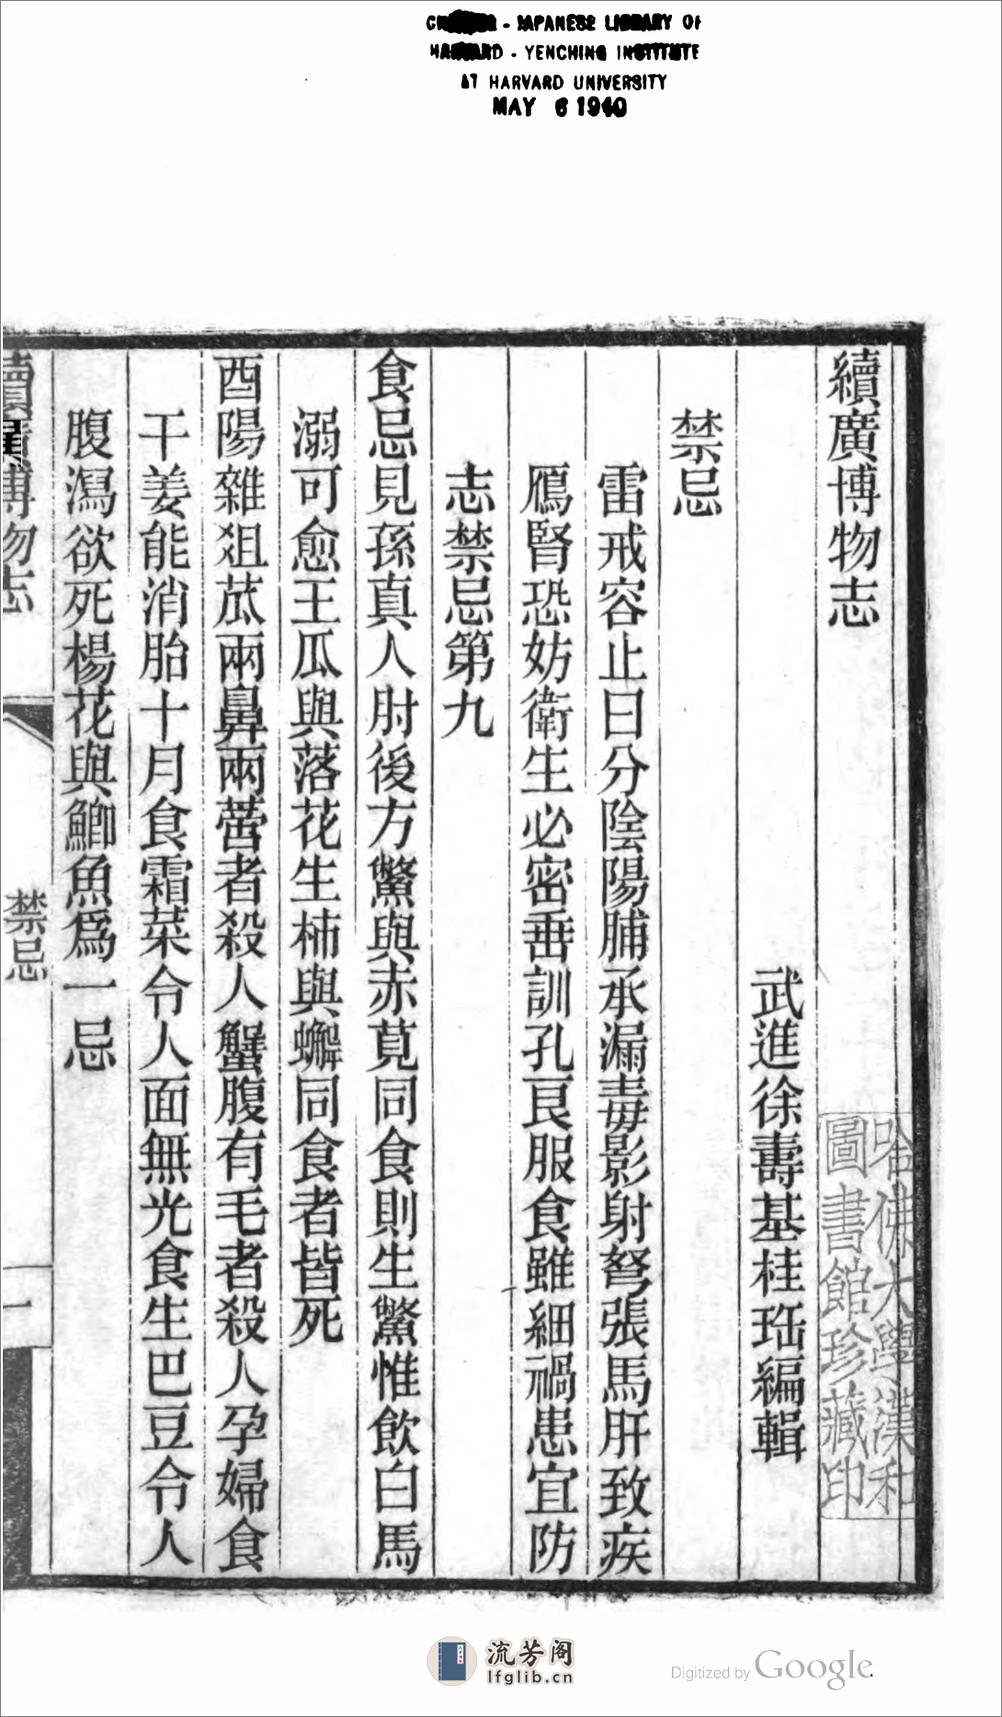 CHINESE - JAPANESE LIBRARY OF
HARVARD - YENCHING INSTITUTE
AT HARVARD UNIVERSITY
MAY 6 1940
續廣博物志
哈佛大學漢和
圖書館珍藏印
武進徐壽基桂珤編輯
禁忌
雷戒容止曰分陰陽脯承漏毒影射弩張馬肝致疾
鴈腎恐妨衛生必密垂訓孔艮服食雖細禍患宜防
志禁忌第九
食忌見孫真人肘後方鱉與赤莧同食則生鱉惟飲白馬
溺可愈王瓜與落花生柿與蠏同食者皆死
酉陽雜俎苽兩鼻兩蔕者殺人蟹腹有毛者殺人孕婦食
干姜能消胎十月食霜菜令人面無光食生巴豆令人
腹瀉欲死楊花與鯽魚爲一忌
續廣博物志
禁忌
一
流芳阁
lfglib.cn
Digitized by Google